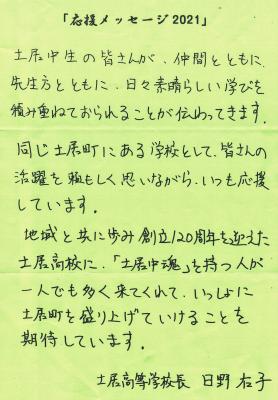 「応援メッセージ2021」
土居中生の皆さんが、仲間とともに、
先生方とともに、日々素晴らしい学びを
積み重ねておられることが伝わってきます。
同じ土居町にある学校として、皆さんの
活躍を頼もしく思いながら、いつも応援
しています。
地域と共に歩み創立120周年を迎えた
土居高校に、「土居中魂」を持つ人が
一人でも多く来てくれて、いっしょに
土居町を盛り上げていけることを
期待しています。
土居高等学校長 日野右子